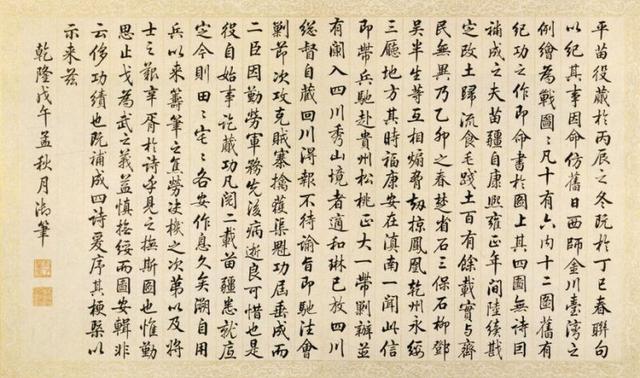 平苗役蕆於丙辰之冬既於丁巳春聯句
以紀其事因命仿舊日西師金川臺灣之
例繪為戰圖〻凡十有六內十二圖舊有
紀功之作即命書於圖上其四圖無詩因
補成之夫苗疆自康熙雍正年間陸續戡
定改土歸流食毛踐土百有餘載實與齊
民無異乃乙卯之春楚省石三保石柳鄧
吳半生等互相煽脅劫掠鳳凰乾州永綏
三廳地方其時福康安在滇南一聞此信
即帶兵馳赴貴州松桃正大一帶剿辦並
有闌入四川秀山境者適和琳已放四川
總督自藏回川淂報不待諭旨即馳往會
剿節次攻克賊寨擒獲渠魁功屆垂成而
二臣因勤勞軍務先後病逝良可惜也是
役自始事訖蕆功凡閱二載苗疆悉就底
定今則田〻宅〻各安作息久矣溯自用
兵以來籌筆之焦勞決機之次第以及將
士之艱辛胥於詩乎見之撫斯圖也惟勤
思止戈為武之義益慎撫綏而圖安輯非
云侈功績也既補成四詩爰序其梗槩以
示來茲
乾隆戊午孟秋月御筆